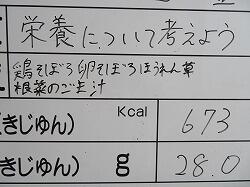 栄養について考えよう
鶏そぼろ卵そぼろほうれん草
根菜のごま汁
Kcal
(きじゅん) 673
(きじゅん) g 28.0